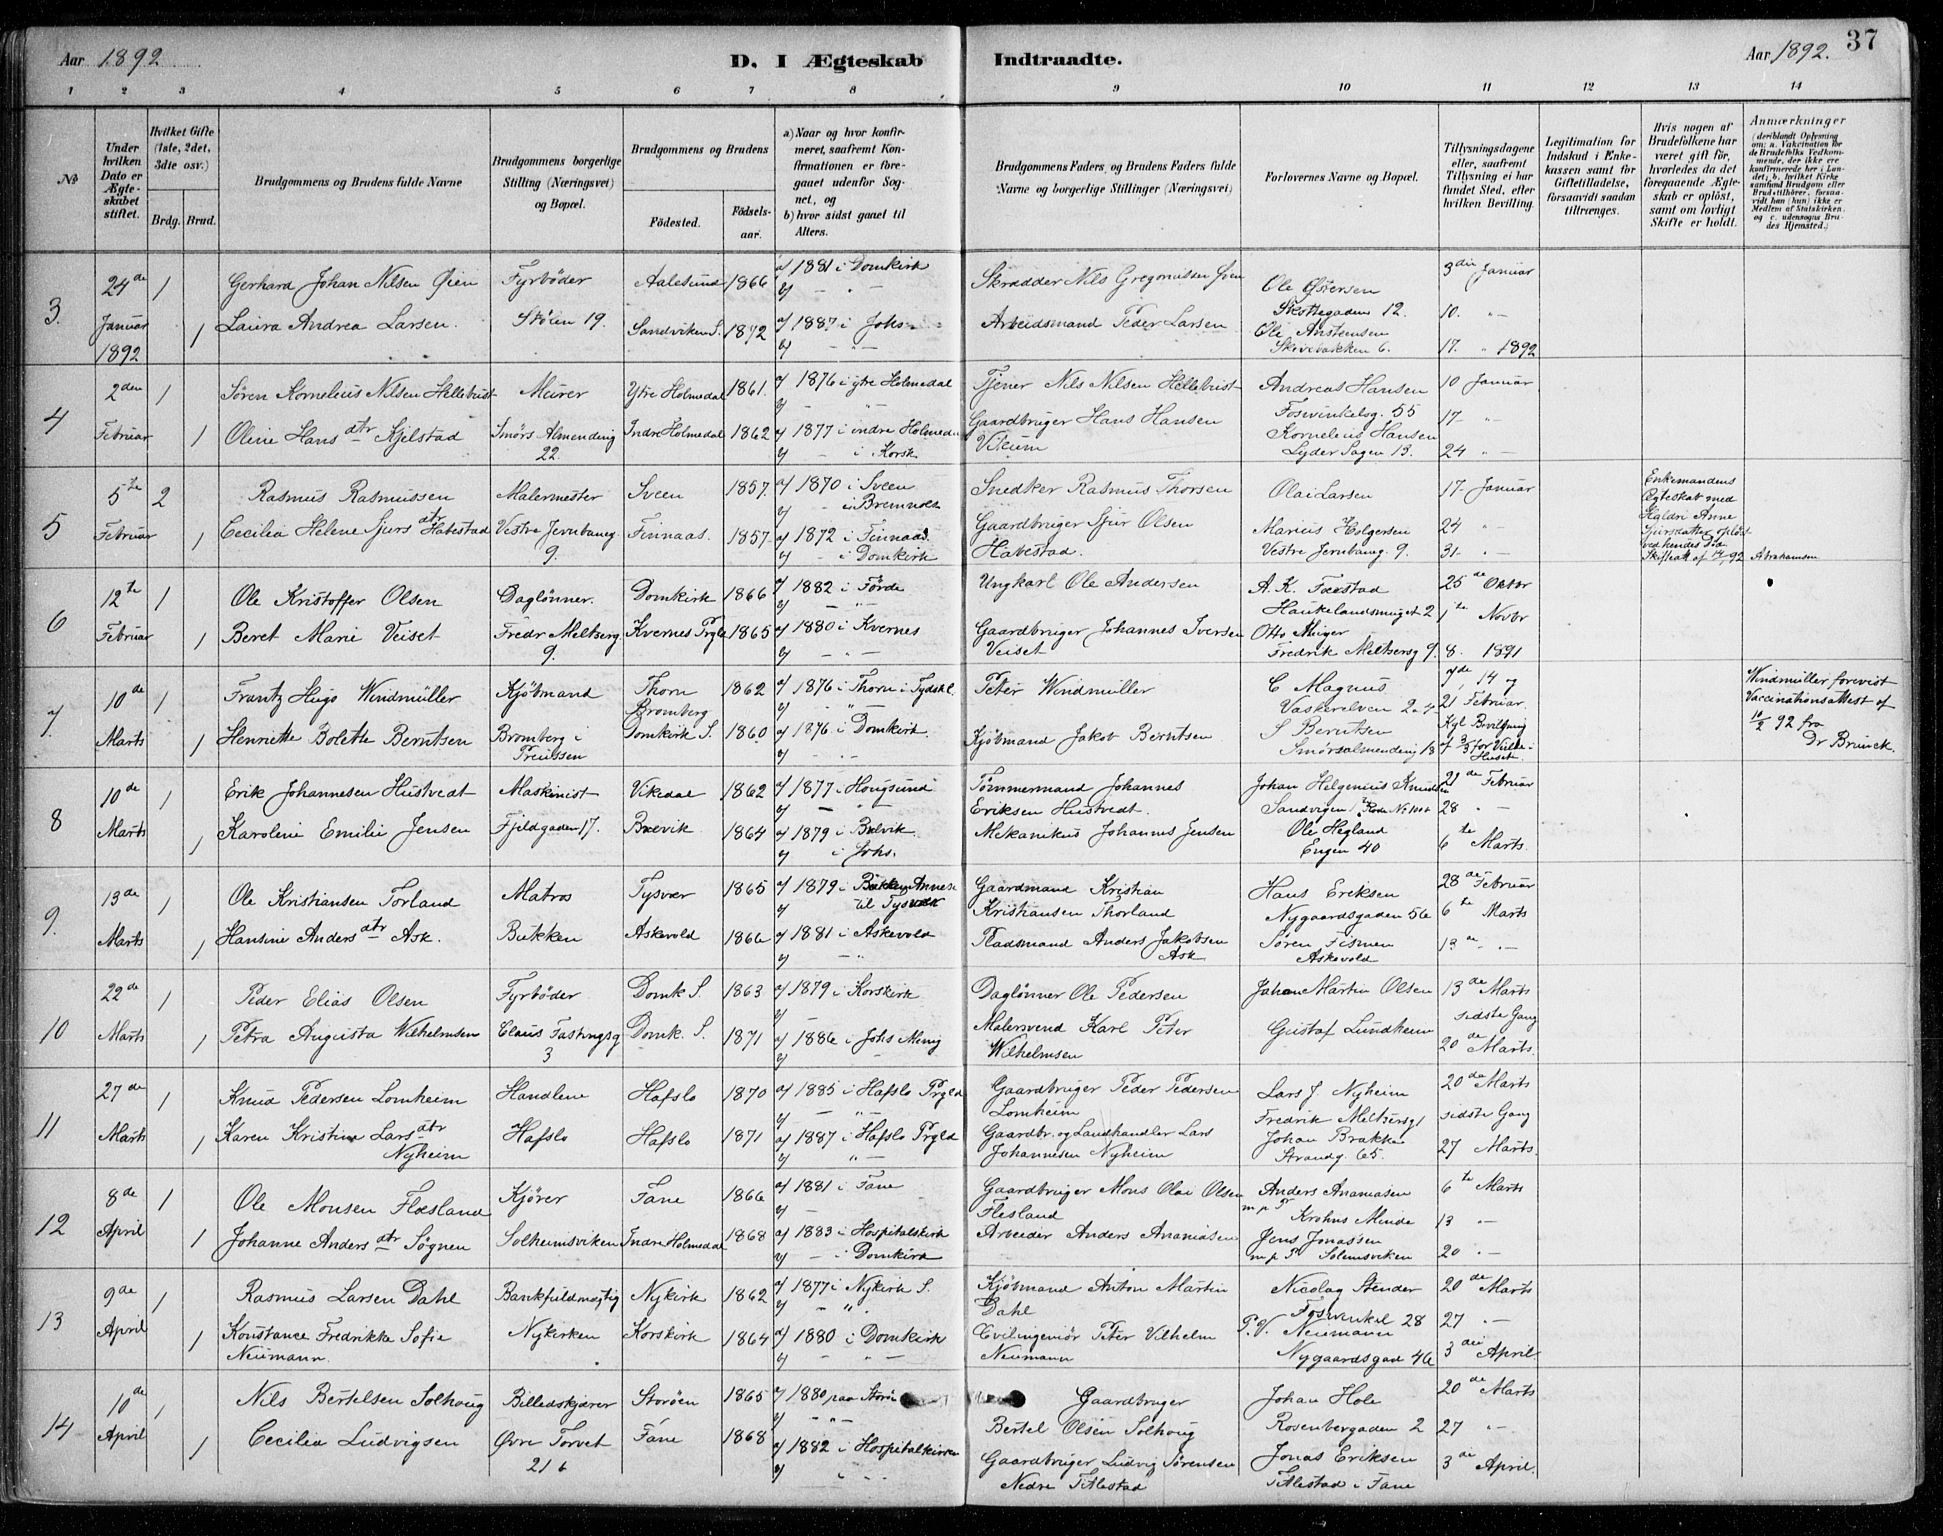 Aar 1892 D. I Ægteskab Indtraadte. Aar 1892. 37
1 2 3 4 5 6 7 8 9 10 11 12 13 14
№
Under hvilken Dato er Ægteskabet stiftet.
Hvilket Gifte (1ste, 2det, 3die osv.)
Brdg. Brud.
Brudgommens og Brudens fulde Navne
Brudgommens borgerlige Stilling (Næringsvei) og Bopæl.
Brudgommens og Brudens
Födested. Födselsaar.
a) Naar og hvor konfirmeret, saafremt Konfirmationen er foregaaet udenfor Sognet, og
b) hvor sidst gaaet til Alters.
Brudgommens Faders og Brudens Faders fulde Navne og borgerlige Stillinger (Næringsvei)
Forlovernes Navne og Bopæl.
Tillysningsdagene eller, saafremt Tillysning ei har fundet Sted, efter hvilken Bevilling.
Legitimation for Indskud i Enkekassen samt for Giftetilladelse, forsaavidt saadan tiltrænges.
Hvis nogen af Brudefolkene har været gift för, hvorledes da det foregaaende Ægteskab er oplöst, samt om lovligt Skifte er holdt.
Anmærkninger
3. 24de 1 Gerhard Johan Nilsen Øien Fyrbøder Aalesund 1866 a) 1881 i Domkirk Skrædder Nils Gregoriussen Øien Ole Østersen 3die Januar
Januar 1 Laura Andrea Larsen. Skolen 19. Sandviken S. 1872 a) 1887 i Johs Arbeidsmand Peder Larsen Skottegaden 12. 10. "
1892 Ole Anstensen
Skivebakken 6. 17. " 1892
4 2den 1 Søren Kornelius Nilsen Hellebust Murer Ytre Holmedal 1861. a) 1876 i ytre Holmedal Tjener Nils Nilsen Hellebust Andreas Hansen 10 Januar
Fosvinkelsg. 55 17- "
Februar 1 Oline Hansdtr Kjelstad Smörs Almending 22. Indre Holmedal 1862 a) 1877 i indre Holmedal Gaardbruger Hans Hansen Kornelius Hansen
b) - i Korsk Lyder Sagen 13. 24 "
5 5te 2 Rasmus Rasmussen Malermester Sveen 1857. a) 1870 i Sveen Snedker Rasmus Thorsen Olai Larsen 17- Januar Enkemandens
b) - i Bremnæs Ægteskab med
Februar 1 Cecilia Helene Sjursdtr Habestad Vestre Jernbaneg 9. Finnaas. 1857. a) 1872 i Finnaas. Gaardbruger Sjur Olsen Marius Holgersen 24 " Anne
b) - i Domkirk Habestad. Vestre Jernbaneg. 9. 31. " Sjursdatter opløst
ved hendes Død
Skifteatt af 14/1 92 Abrahamsen
6 12te 1 Ole Kristoffer Olsen Dagløner. Domkirk 1866 a) 1882 i Førde Ungkarl Ole Andersen A. K. Farstad 25de Oktbr
Haukelandsmuget 2 1te Novbr
Februar 1 Beret Marie Veiset Fredr Meltzersg 9. Kvernes Prgld 1865 a) 1880 i Kvernes Gaardbruger Johannes Iversen Veiset Otto Meiyer
Fredrik Meltzersg 9. 8. 1891
7. 10de 1 Frantz Hugo Windmüller Kjøbmand Thorn Bromberg 1862 a) 1876 i Thorn i Tydskl. Peter Windmüller C Magnus 7de, 14 og Windmüller forevist
Vaskerelven 21 Februar. Vaccinationsattest af
Marts 1 Henriette Bolette Berntsen Bromberg i Preüssen Domkirk S. 1860 a) 1876 i Domkirk Kjøbmand Jakob Berntsen S Berntsen Kgl Bevilgning 10/2 92 fra
Smörsalmending 13 Dr Brunck.
8 10de 1 Erik Johannesen Hustvedt Maskinist Vikedal 1862 a) 1877 i Hougsund Tømmermand Johannes Johan Helgenius Knudsen 21de Februar
Eriksen Hustvedt. Sandvigen 28 "
Marts 1 Karoline Emilie Jensen Fjeldgaden 17. Brevik 1864 a) 1879 i Brevik Mekanikus Johannes Jensen Ole Hegland
b) i Johs. Engen 40 6te Marts.
9. 13de 1 Ole Kristiansen Torland Matros Tysvær 1865 a) 1879 i Bakken Annex Gaardmand Kristian Hans Eriksen 28de Februar
til Tysvær Kristiansen Thorland Nygaardsgaden 56 6te Marts
Marts 1 Hansine Andersdtr Ask. Bakken Askevold 1866 a) 1881 i Askevold Pladsmand Anders Jakobsen Ask Søren Fismen Askevold 13de "
10 22de 1 Peder Elias Olsen Fyrbøder Domk S. 1863 a) 1879 i Korskirk Dagløner Ole Pedersen Johan Martin Olsen 13de Marts
Marts 1 Petra Augusta Wilhelmsen Claus Fastingsg 3 Domk. S. 1871 a) 1886 i Johs Menig Malersvend Karl Peter Wilhelmsen Gustaf Lundheim sidste Gang
20de Marts.
11 27de 1 Knud Pedersen Lomheim Handlene Hafslo 1870 a) 1885 i Hafslo Prgld Gaardbruger Peder Pedersen Lomheim Lars J. Nyheim 20de Marts
Fredrik Meltzersg 1 sidste Gang
Marts 1 Karen Kristine Larsdtr Nyheim Hafslo Hafslo 1871 a) 1887 i Hafslo Prgld Gaardbr. og Landhandler Lars Johannesen Nyheim Johan Brække
Strandg. 65. 27 Marts.
12 8de 1 Ole Monsen Flæsland Kjører Fane 1866 a) 1881 i Fane Gaardbruger Mons Olai Olsen Flesland Anders Ananiasen 6te Marts
m p P Krohns Minde 13 "
April 1 Johanne Andersdtr Søgnen Solheimsviken Indre Holmedal 1868 a) 1883 i Hospitalskirk Arbeider Anders Ananiasen Jens Jonassen
b) - i Domkirk m p P Solemsviken 20 "
13 9de 1 Rasmus Larsen Dahl Bankfuldmægtig Nykirk 1862 a) 1877 i Nykirk S. Kjøbmand Anton Martin Dahl Nicolay Stender 20de Marts
Fosvinkel 28 27 "
April 1 Konstance Fredrikke Sofie Neumann. Nykirken Korskirk 1864 a) 1880 i Domkirk Civilingeniør Peter Vilhelm Neumann P. V. Neumann
Nygaardsgad 46 3die April
14 10de 1 Nils Bertelsen Solhoug Billedskjærer Storøen 1865 a) 1880 paa Storø Gaardbruger Johan Hole 20de Marts
Bertel Olsen Solhoug Rosenbergaden 2 27 "
April 1 Cecilia Ludvigsen Øvre Torvet 21 b Fane 1868 a) 1882 i Hospitalkirken Gaardbruger Ludvig Sørensen Jonas Eriksen 3die April.
Nedre Titlestad Titlestad i Fane